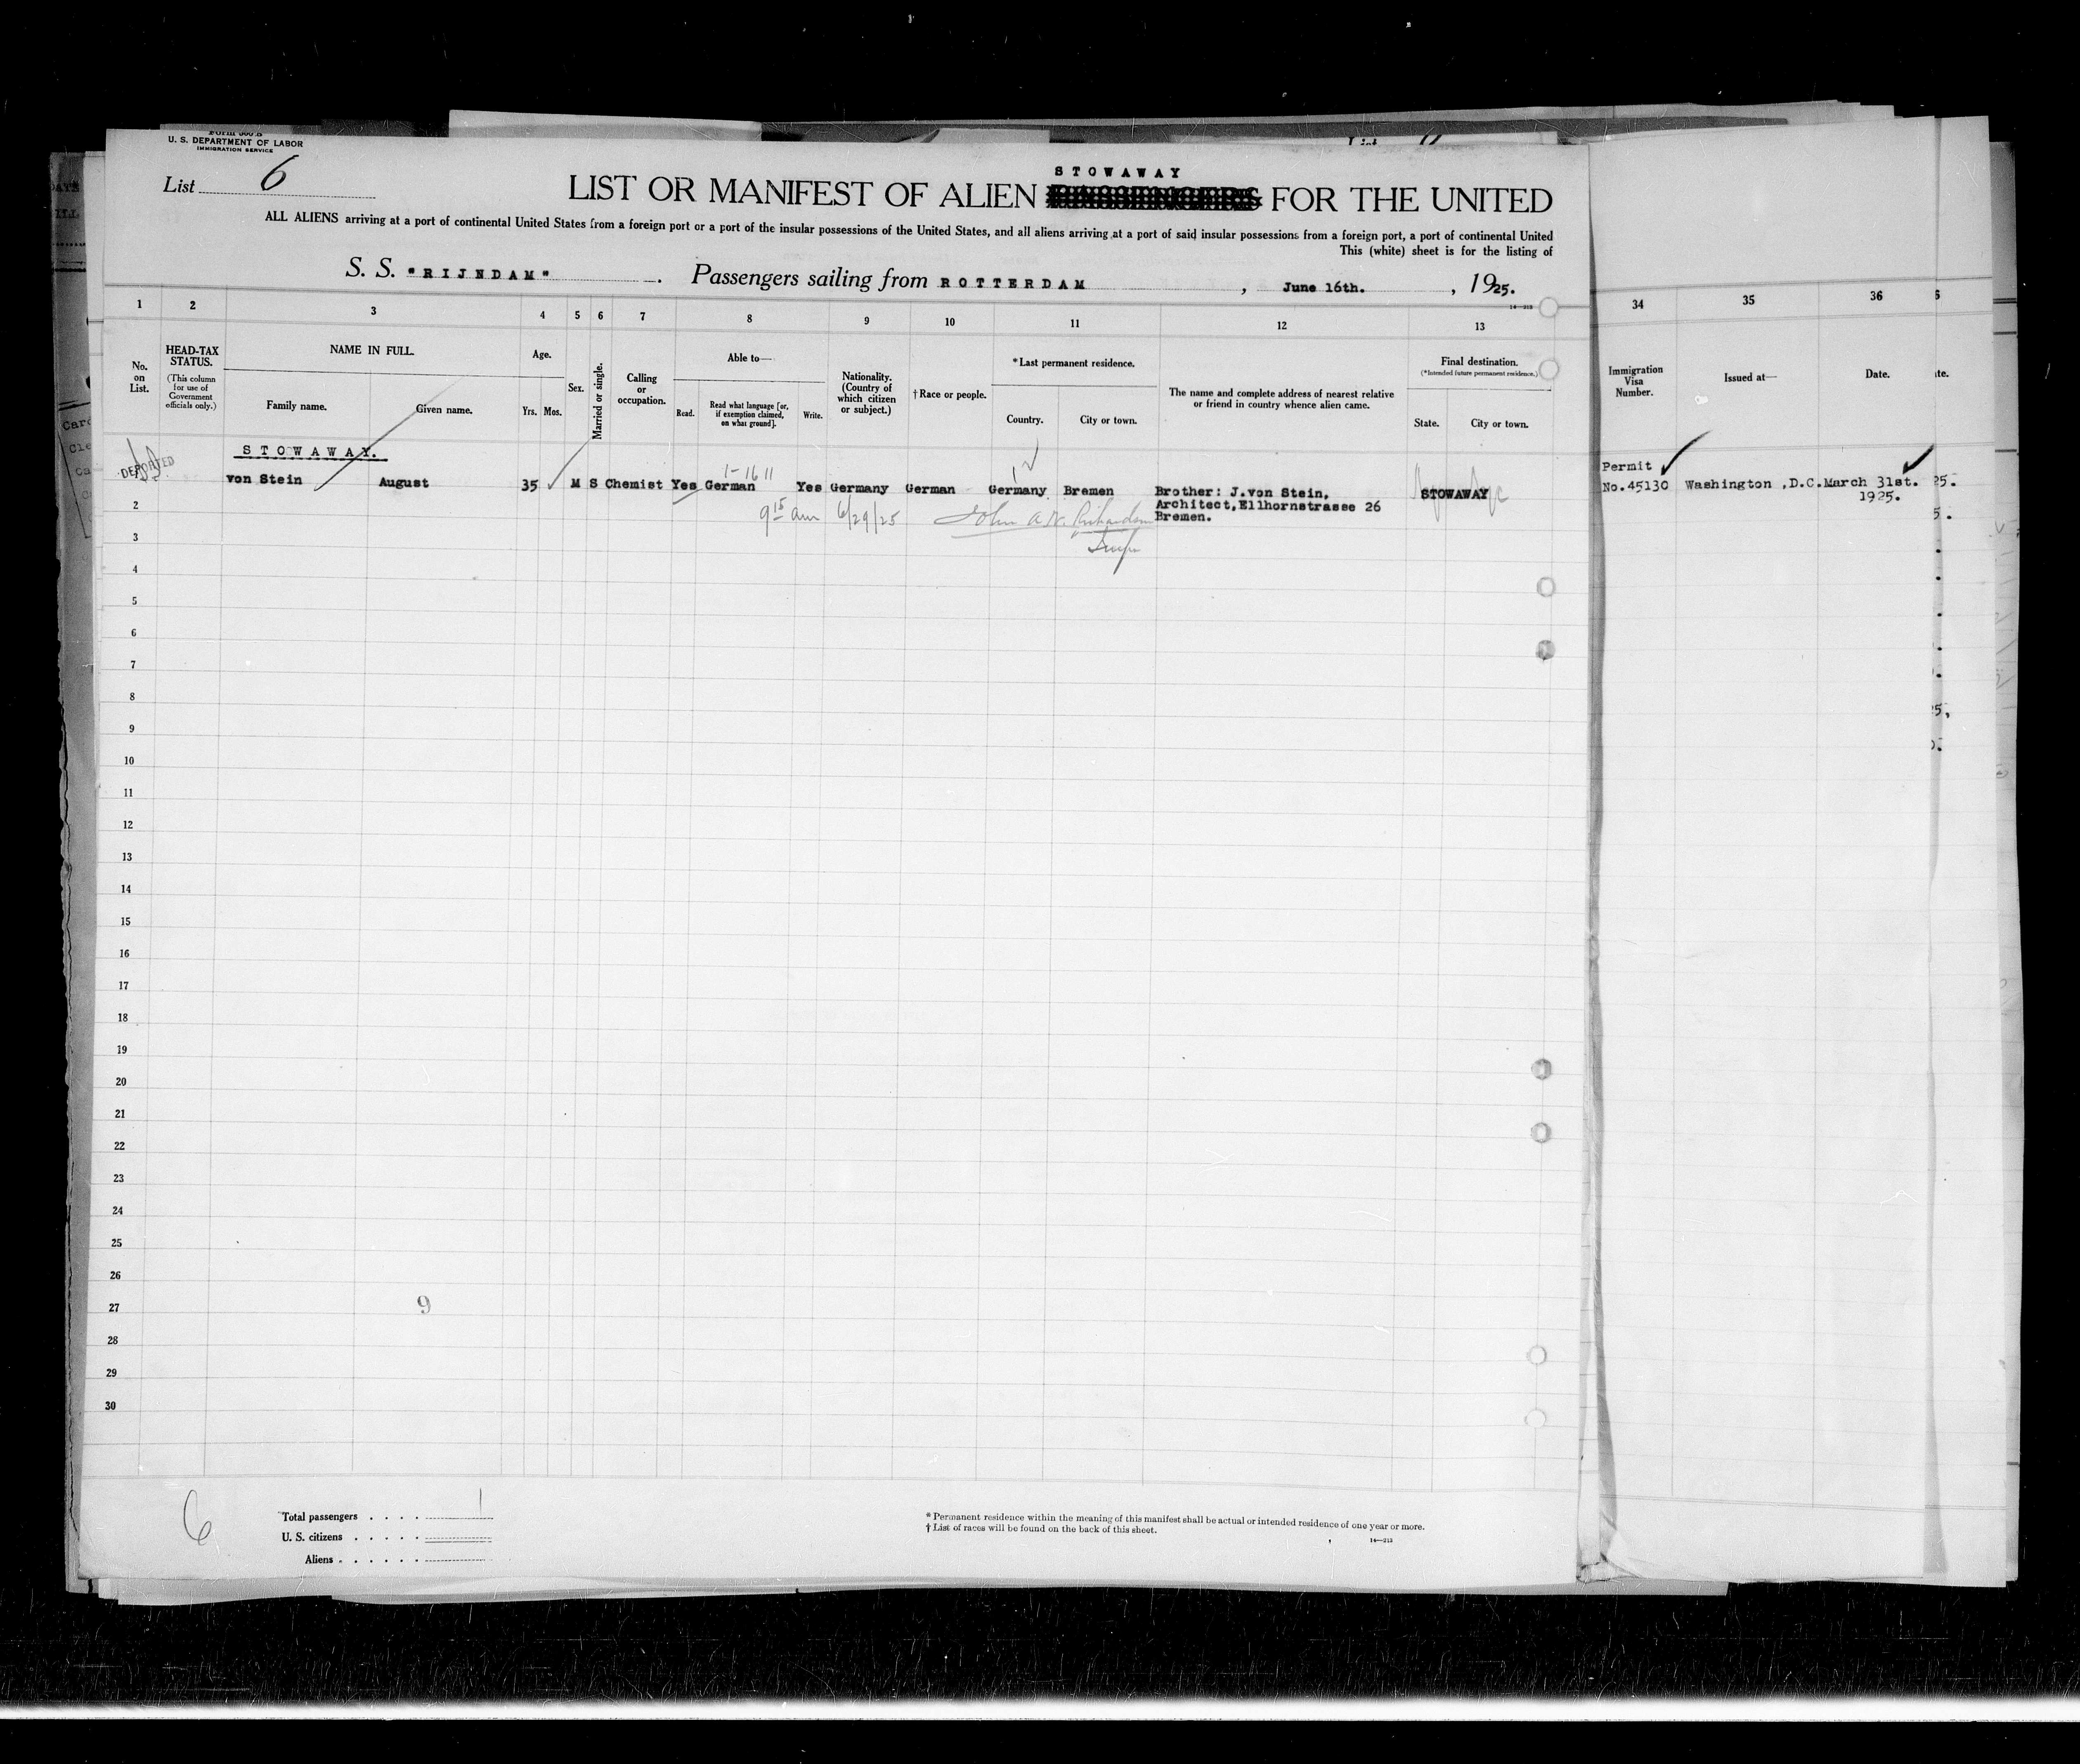 U. S. DEPARTMENT OF LABOR
IMMIGRATION SERVICE
List 6
STOWAWAY
LIST OR MANIFEST OF ALIEN PASSENGERS FOR THE UNITED
ALL ALIENS arriving at a port of continental United States from a foreign port or a port of the insular possessions of the United States, and all aliens arriving at a port of said insular possessions from a foreign port, a port of continental United
This (white) sheet is for the listing of
S. S. "RIJNDAM". Passengers sailing from ROTTERDAM, June 16th., 1925.
1 2 3 4 5 6 7 8 9 10 11 12 13 34 35 36
No. on List.
HEAD-TAX STATUS.
(This column for use of Government officials only.)
NAME IN FULL.
Family name. Given name.
Age.
Yrs. Mos.
Sex.
Married or single.
Calling or occupation.
Able to—
Read. Read what language [or, if exemption claimed, on what ground]. Write.
Nationality. (Country of which citizen or subject.)
† Race or people.
*Last permanent residence.
Country. City or town.
The name and complete address of nearest relative or friend in country whence alien came.
Final destination.
(*Intended future permanent residence.)
State. City or town.
Immigration Visa Number.
Issued at—
Date.
STOWAWAY.
DEPORTED
1-16 11
von Stein August 35 M S Chemist Yes German Yes Germany German Germany Bremen Brother: J.von Stein, STOWAWAY
Architect,Ellhornstrasse 26
Bremen.
Permit
No.45130 Washington ,D.C. March 31st.
1925.
9 15 am 6/29/25 John A. W. Richardson
2
3
4
5
6
7
8
9
10
11
12
13
14
15
16
17
18
19
20
21
22
23
24
25
26
27
9
28
29
30
6
Total passengers . . . . 1
U. S. citizens . . . . .
Aliens . . . . . .
* Permanent residence within the meaning of this manifest shall be actual or intended residence of one year or more.
† List of races will be found on the back of this sheet.
14—213